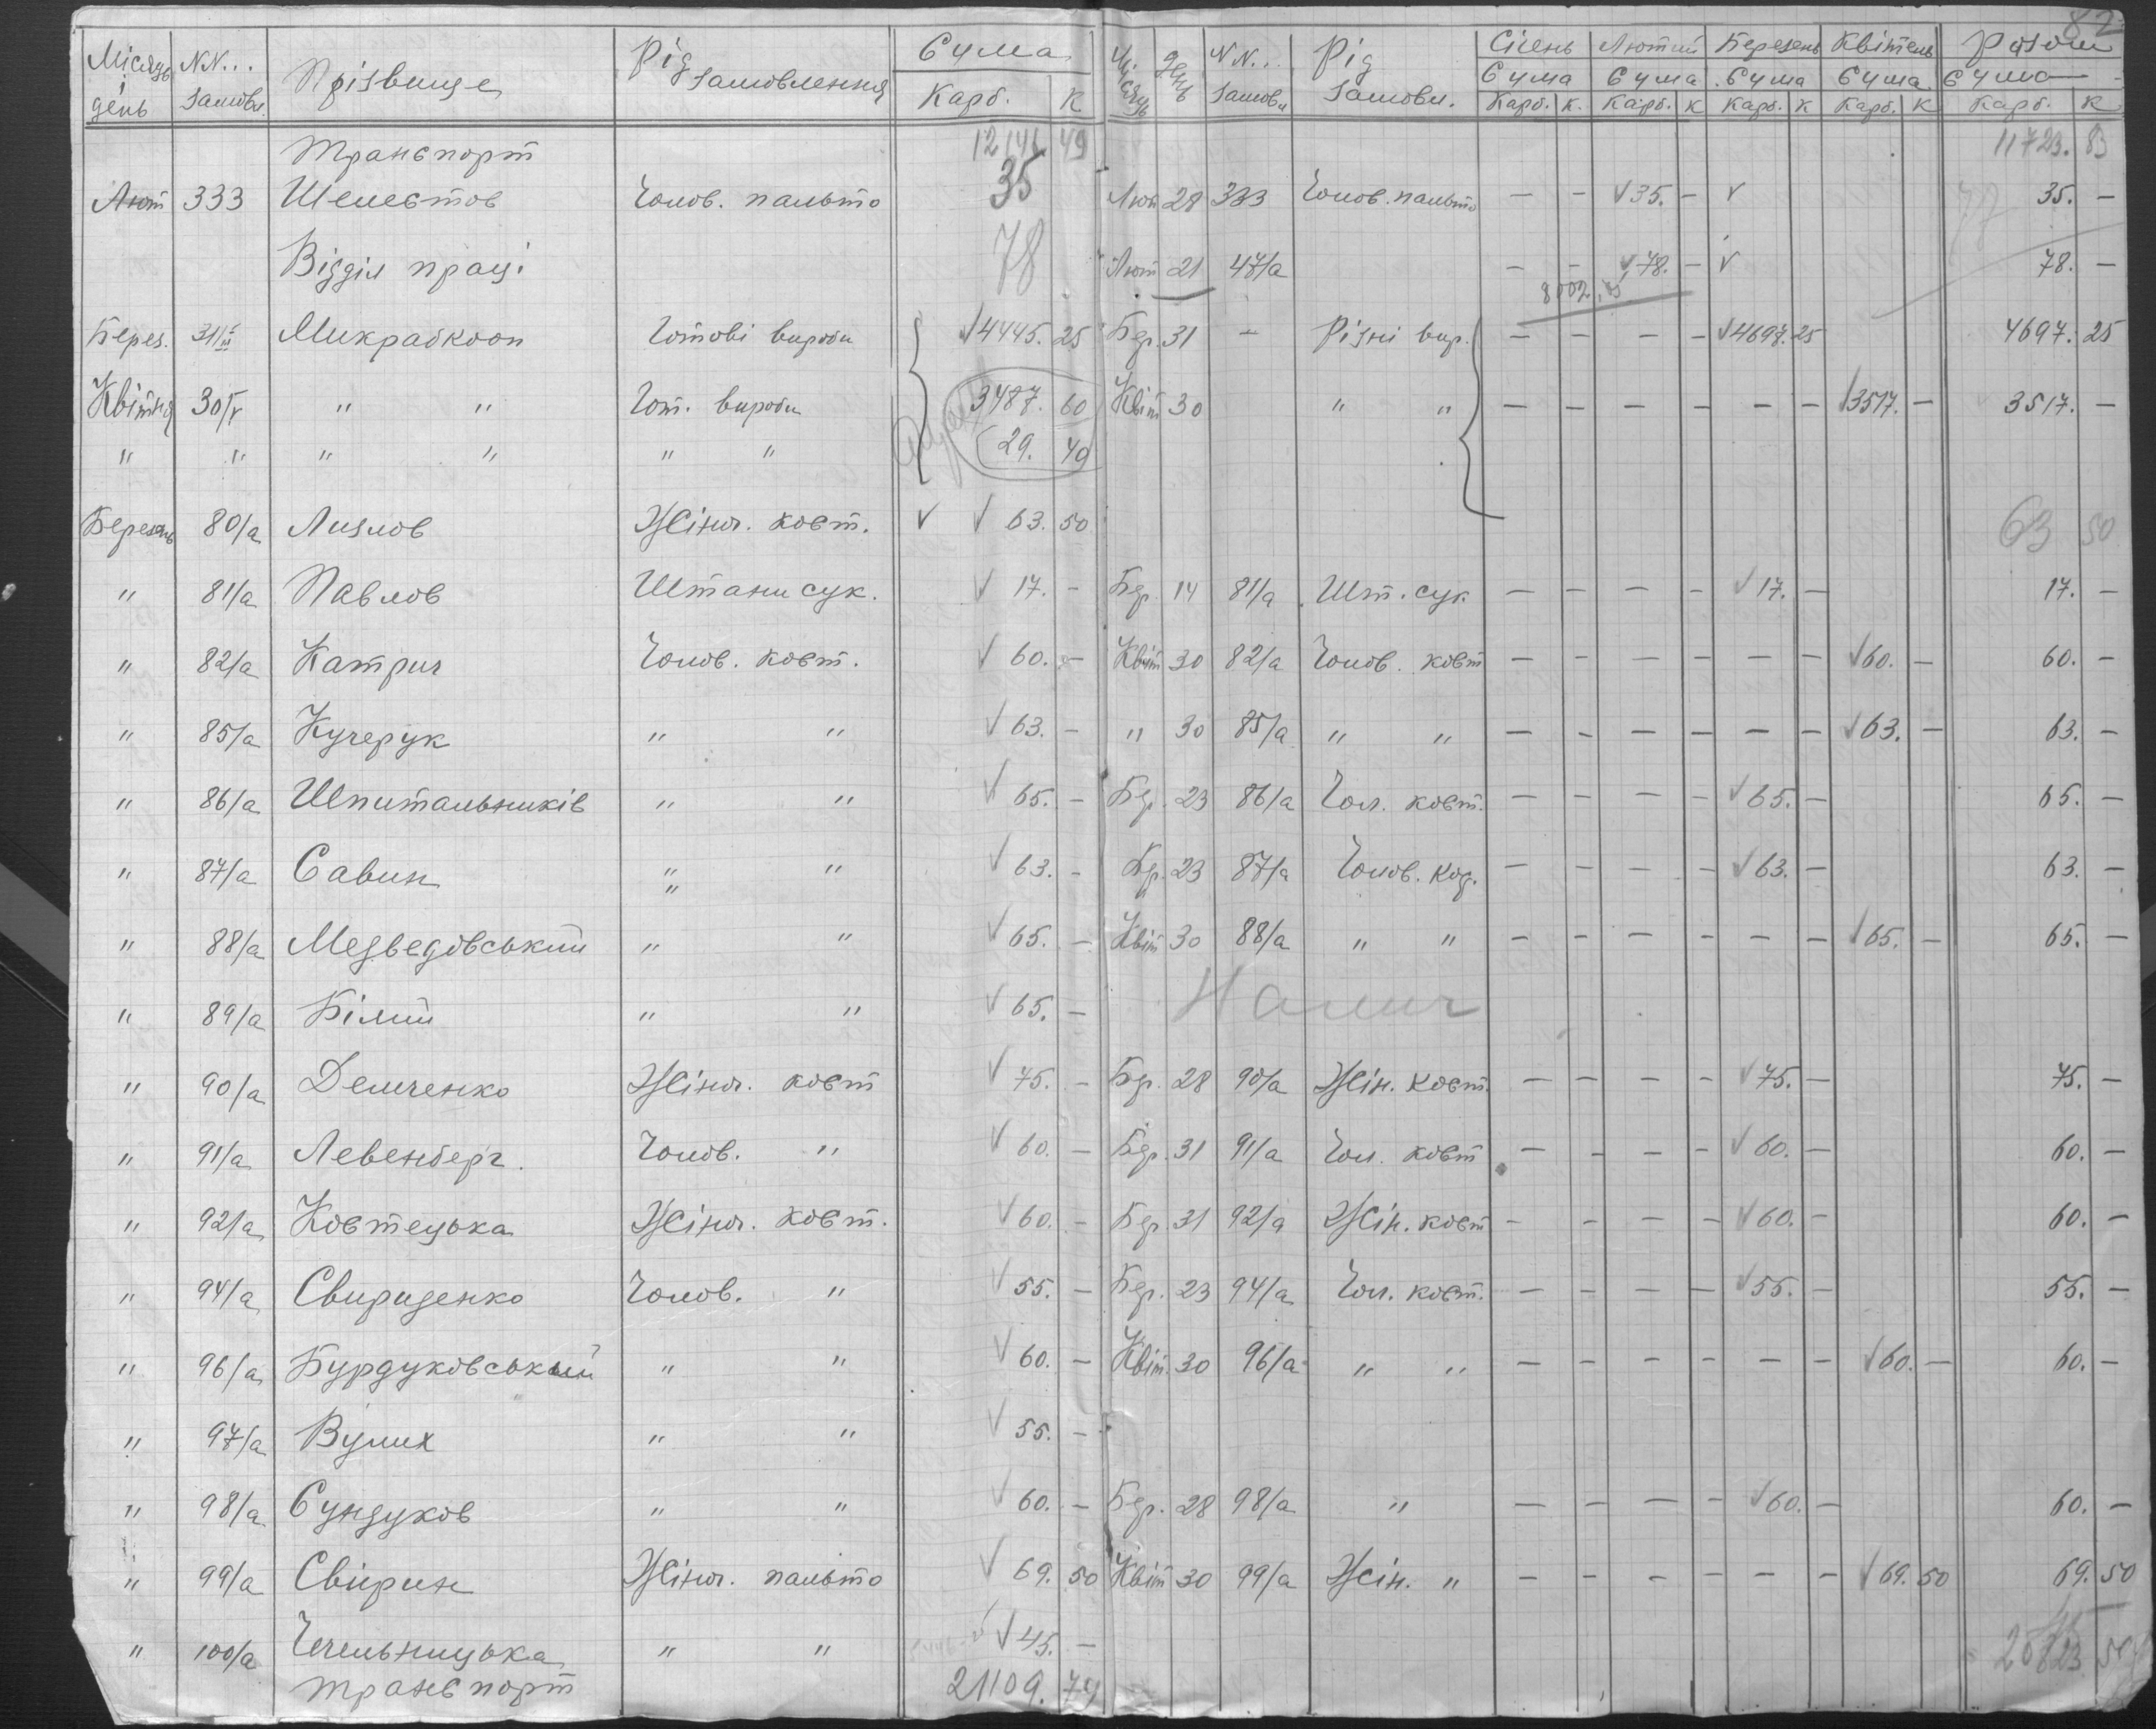 82
Місяць і день NN... замовл. Прізвище Рід замовлення Сума Карб. К Місяць День NN... Замовл Рід Замовл. Січень Сума Карб. К. Лютий Сума Карб. К Березень Сума Карб. К Квітень Сума Карб. К Разом Сума Карб. К
Транспорт 12146 49 11723. 83
Лют 333 Шелестов Чолов. пальто 35 Лют 28 333 Чолов. пальто — - √35. - √ 35. —
Відділ праці 78 Лют 21 47/а - - √78. - √ 78. —
8002.
Берез. 31/III Микрабкооп Готові вироби √4445. 25 Бер. 31 - Різні вир. — - - - √4697. 25 4697. 25
Квітня 30/IV " " Гот. вироби 3487. 60 Квіт 30 " " — — — - - - √3517. — 3517. —
" " " " " " 29. 40
Березень 80/а Лизлов Жіноч. кост. √ √ 63. 50 63 50
" 81/а Павлов Штани сук. √ 17. - Бер. 14 81/а Шт. сук — — — - √17. — 17. —
" 82/а Катрич Чолов. кост. √ 60. — Квіт 30 82/а Чолов. кост — — — — — — √60. — 60. —
" 85/а Кучерук " " √ 63. - " 30 85/а " " — - — — — — √63. — 63. —
" 86/а Шпитальників " " √ 65. - Бер. 23 86/а Чол. кост. — - - - √65. — 65. —
" 87/а Савин " " √ 63. - Бер. 23 87/а Чолов. кос. — - - - √63. — 63. —
" 88/а Медведовський " " √ 65. - Квіт 30 88/а " " - - — - - — √65. — 65. —
" 89/а Білий " " √ 65. —
" 90/а Демченко Жіноч. кост √ 75. - Бер. 28 90/а Жін. кост. — - - - √75. — 75. —
" 91/а Левенберг. Чолов. " √ 60. — Бер. 31 91/а Чол. кост — - - - √60. — 60. —
" 92/а Костецька Жіноч. кост. √60. - Бер. 31 92/а Жін. кост - - — - √60. - 60. —
" 94/а Свириденко Чолов. " √ 55. — Бер. 23 94/а Чол. кост. — - — — √55. — 55. —
" 96/а Бурдуковський " " √60. — Квіт. 30 96/а " " — - - - — — √60. — 60. —
" 97/а Вулих " " √ 55. —
" 98/а Сундуков " " √ 60. — Бер. 28 98/а " — - — - √60. — 60. —
" 99/а Свирин Жіноч. пальто √ 69. 50 Квіт 30 99/а Жін. " - - - - - — √69. 50 69. 50
" 100/а Чечельницька " " √45. —
Транспорт 21109. 79 20823 58